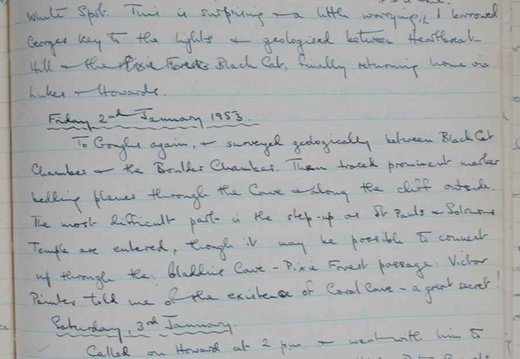 White Spot. This is surprising & a little worrying. I borrowed
Georges key to the lights & geologised between Heartbreak
Hill & the Pixie Forest Black Cat, finally returning home via
Lukes & Howards.
Friday 2nd January 1953.
To Goughs again, & surveyed geologically between Black Cat
Chamber & the Boulder Chamber. Then traced prominent marker
bedding planes through the Cave & along the cliff outside.
The most difficult part is the step-up as St Pauls & Solomons
Temple are entered, though it may be possible to connect
up through the Bladder Cave - Pixie Forest passage. Victor
Painter told me of the existence of Coral Cave - a great secret!
Saturday, 3rd January.
Called on Howard at 2 pm. & went with him to